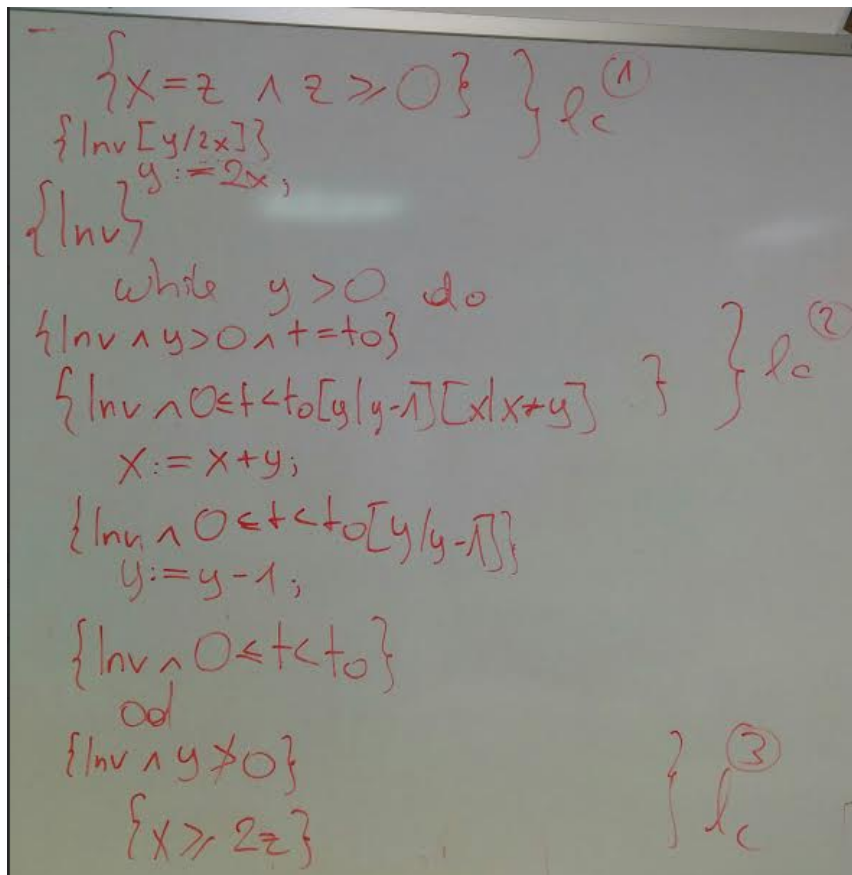 {x=z ∧ z ≥ 0} } lc ①
{Inv[y/2x]}
y := 2x;
{Inv}
while y > 0 do
{Inv ∧ y>0 ∧ t=t0}
{Inv ∧ 0≤t<t0[y/y-1][x/x+y] } } lc ②
x := x+y;
{Inv ∧ 0≤t<t0[y/y-1]}
y := y-1;
{Inv ∧ 0≤t<t0}
od
{Inv ∧ y≯0}
{x ≥ 2z} } lc ③